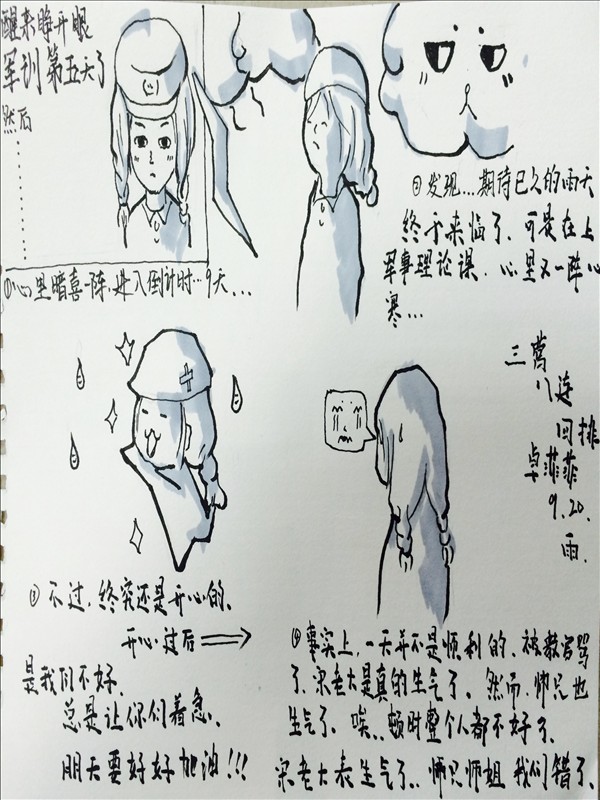 醒来睁开眼
军训第五天了
然后
............
①心里暗喜一阵,进入倒计时...9天...
②发现...期待已久的雨天
终于来临了,可是在上
军事理论课,心里又一阵心
寒...
三营
八连
四排
卓菲菲
9.20.
雨.
③不过,终究还是开心的,
开心过后
是我们不好,
总是让你们着急,
明天要好好加油!!!
④事实上,一天并不是顺利的,被教官骂
了,宋老大是真的生气了。然而,师只也
生气了。唉..顿时整个人都不好了,
宋老大表生气了..师只师姐我们错了、